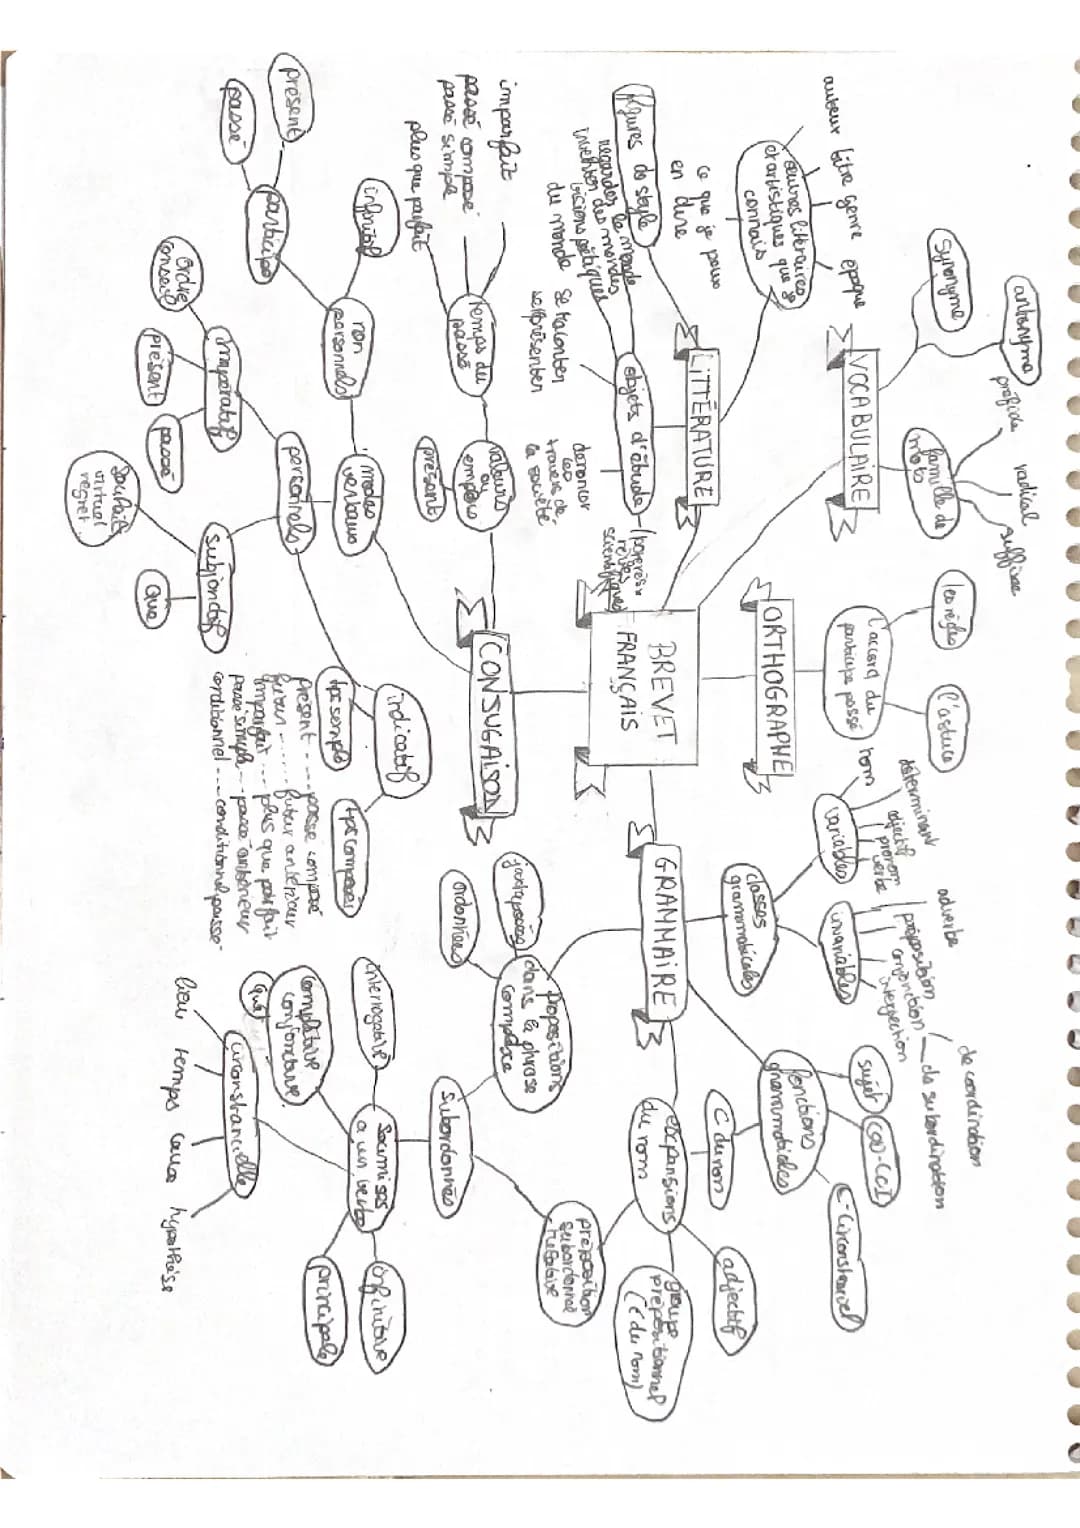 BREVET
FRANÇAIS
VOCABULAIRE
synonyme
antonyme
famille de
mots
préfixe
radical
suffixe
LITTÉRATURE
oeuvres littéraires
et artistiques que je
connais
auteur
titre
genre
époque
ce que je peux
en dire
figures de style
objets d'étude
regarder le monde
inventer des mondes
visions poétiques
du monde
se raconter
se représenter
dénoncer
les
travers de
la société
(progrès
rêves
scientifiques
ORTHOGRAPHE
l'accord du
participe passé
les règles
l'astuce
CONJUGAISON
valeurs
ou
emplois
présent
temps du
passé
imparfait
passé composé
passé simple
plus que parfait
modes
verbaux
non
personnels
infinitif
participe
présent
passé
personnels
impératif
ordre
conseil
présent
passé
subjonctif
Souhait
virtuel
regret
Que
indicatif
tps simple
tps composés
présent --- passé composé
futur ---- futur antérieur
imparfait --- plus que parfait
passé simple -- passé antérieur
conditionnel --- conditionnel passé
GRAMMAIRE
classes
grammaticales
variables
nom
déterminant
adjectif
pronom
verbe
invariables
adverbe
préposition
conjonction
interjection
de coordination
de subordination
fonctions
grammaticales
sujet
COD-COI
C-Circonstanciel
C du nom
expansions
du nom
adjectif
groupe
prépositionnel
(C du nom)
préposition
subordonnée
relative
Propositions
dans la phrase
complexe
juxtaposées
ordonnées
Subordonnées
Soumises
à un verbe
interrogative
complétive
conjonctive.
que
circonstancielle
lieu
temps
cause
hypothèse
infinitive
principale